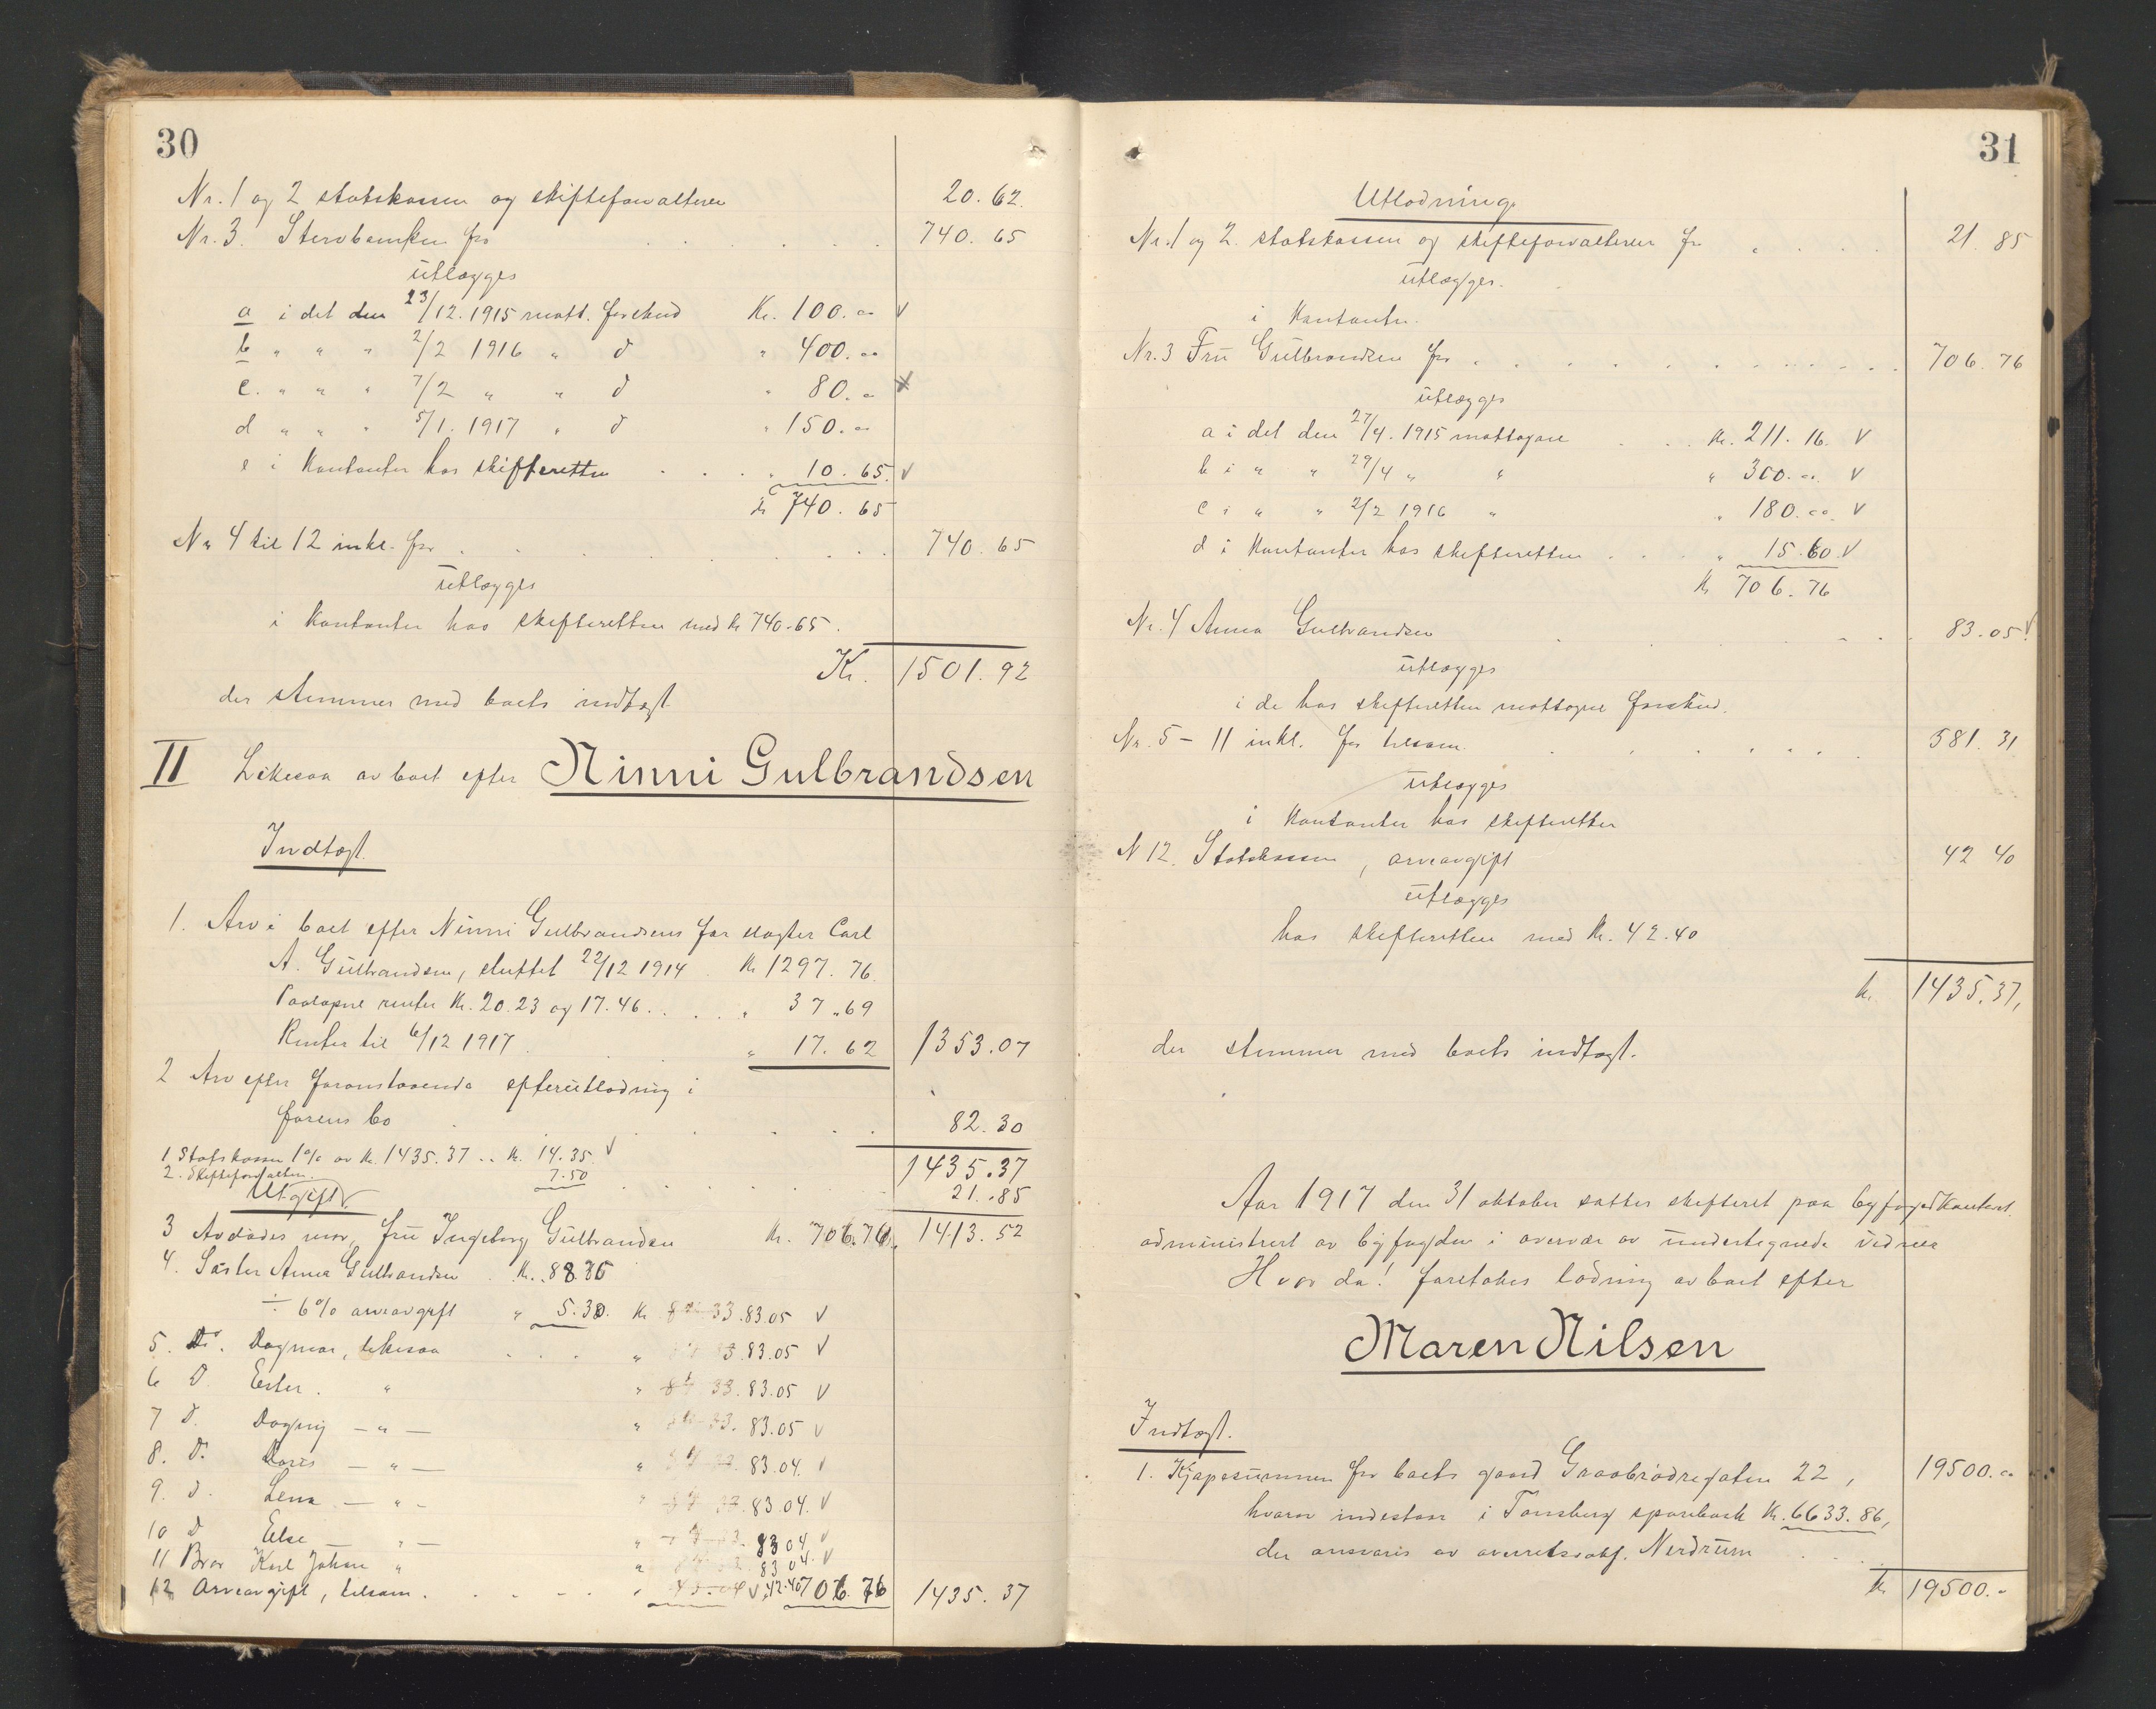 30
Nr. 1 og 2 statskassen og skifteforvalteren 20.62.
Nr. 3. Stervboenken for 740.65
utlægges
a i det den 23/12.1915 mott. forskud Kr. 100.00 v
b " " " 2/2 1916 " d " 400.00
c. " " " 7/2 " " d " 80.00
d " " " 5/1. 1917 " d " 150.00
e i Kontanter hos skifteretten " 10.65. v
kr 740.65
Nr 4 til 12 inkl. for 740.65
utlægges
i Kontanter hos skifteretten med kr 740.65.
Kr. 1501.92
der stemmer med boets indtægt.
II Likesaa av boet efter Ninni Gulbrandsen
Indtægt.
1. Arv i boet efter Ninni Gulbrandsens far slagter Carl
A. Gulbrandsen, sluttet 22/12 1914 Kr 1297.76
Paaløpne renter Kr. 20.23 og 17.46 " 37.69
Renter til 6/12 1917 " 17.62 1353.07
2 Arv efter foranstaaende efterutlodning i
farens bo 82.30
1 Statskassen 1% av Kr. 1435.37 .. Kr. 14.35 v 1435.37
2. Skifteforvalteren 7.50 21.85
Utgift
3 Avdødes mor, fru Ingeborg Gulbrandsen Kr. 706.76. 1413.52
4. Søster Anna Gulbrandsen Kr. 88.35
÷ 6% arveavgift " 5.30. Kr 83.05 v
5. Do. Dagmar, likesaa " 83.05 v
6 D Ester. " " 83.05 v
7 D. Dagny — " — " 83.05 v
8. D. Doris — " — " 83.04. v
9. D. Lena — " — " 83.04. v
10 D Else — " — " 83 04 v
11 Bror Karl Johan " " 83 04. v
12 Arveavgift, tilsam. " v. 42.40 706.76 1435.37
31
Utlodning
Nr. 1 og 2. statskassen og skifteforvalteren for 21.85
utlægges.
i Kontanter.
Nr. 3 Fru Gulbrandsen for 706.76
utlægges
a i det den 27/4. 1915 mottagne Kr. 211.16. v
b i " " 29/4 " " " 300.00. v
c i " " 2/2 1916 " " 180.00. v
d i Kontanter hos skifteretten " 15.60. v
Kr 706.76
Nr. 4 Anna Gulbrandsen 83.05 v
utlægges
i de hos skifteretten mottagne forskud.
Nr. 5 – 11 inkl. for tilsam. 581.31
utlægges
i Kontanter hos skifteretten
N 12. Statskassen, arveavgift 42 40
utlægges
hos skifteretten med Kr. 42.40
kr. 1435.37,
der stemmer med boets indtægt.
Aar 1917 den 31 oktober sattes skifteret paa byfogedkontoret.
administrert av byfogden i overvær av undertegnede vidner
Hvor da! foretokes lodning av boet efter
Maren Nilsen
Indtægt.
1. Kjøpesummen for boets gaard Graabrødregaten 22, 19500.00
hvorav indestaar i Tønsberg sparebank Kr. 6633.86,
der ansvares av overretssakf. Nerdrum
Kr 19500.–